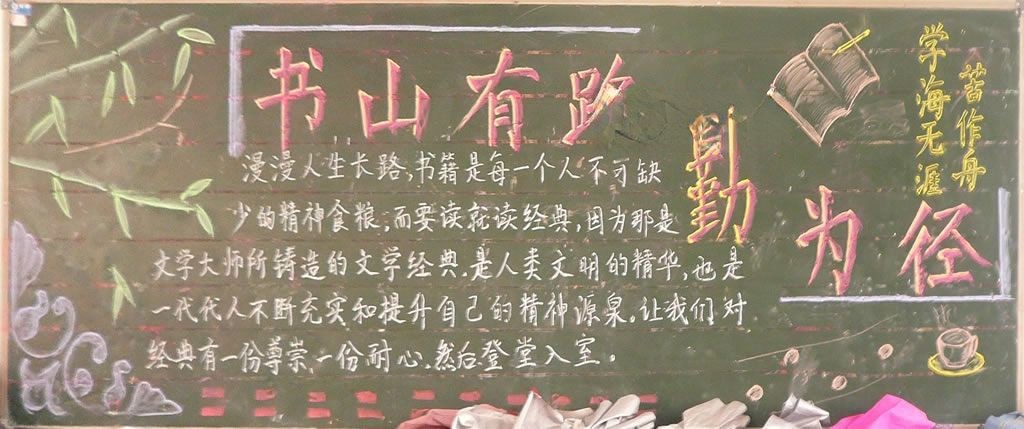 书山有路
勤
为径
学海无涯
苦作舟
漫漫人生长路,书籍是每一个人不可缺
少的精神食粮;而要读就读经典,因为那是
文学大师所铸造的文学经典.是人类文明的精华,也是
一代代人不断充实和提升自己的精神源泉.让我们对
经典有一份尊崇,一份耐心.然后登堂入室。